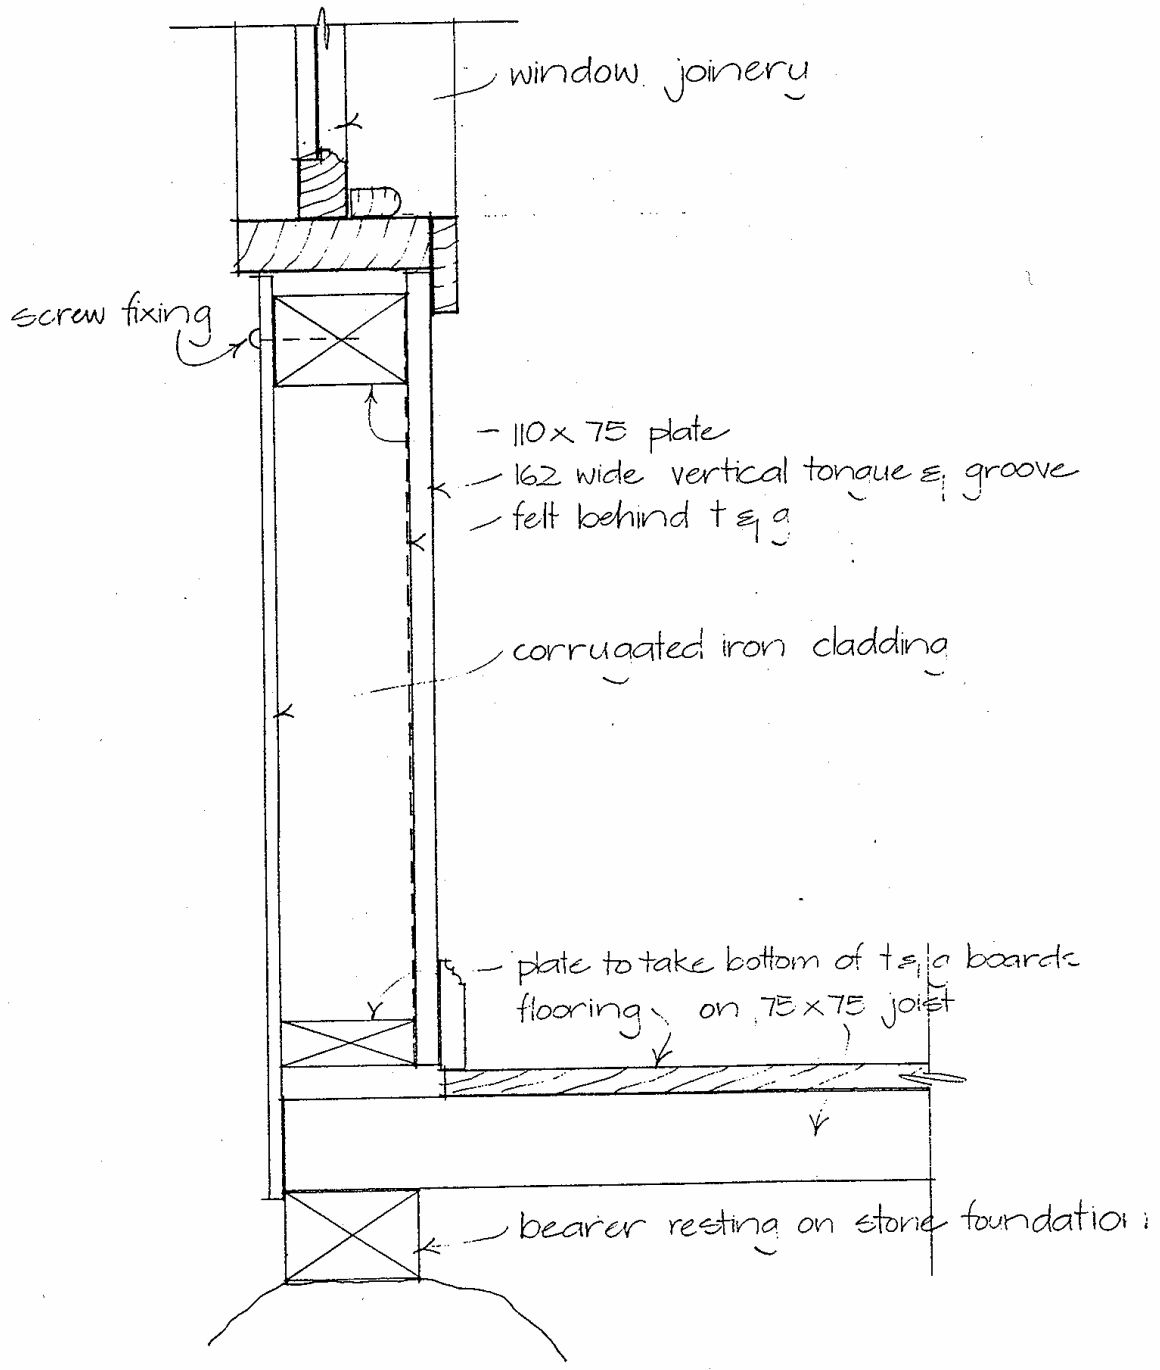 window joinery
screw fixing
- 110 x 75 plate
162 wide vertical tongue & groove
felt behind t & g
corrugated iron cladding
plate to take bottom of t & g boards
flooring on 75 x 75 joist
bearer resting on stone foundation